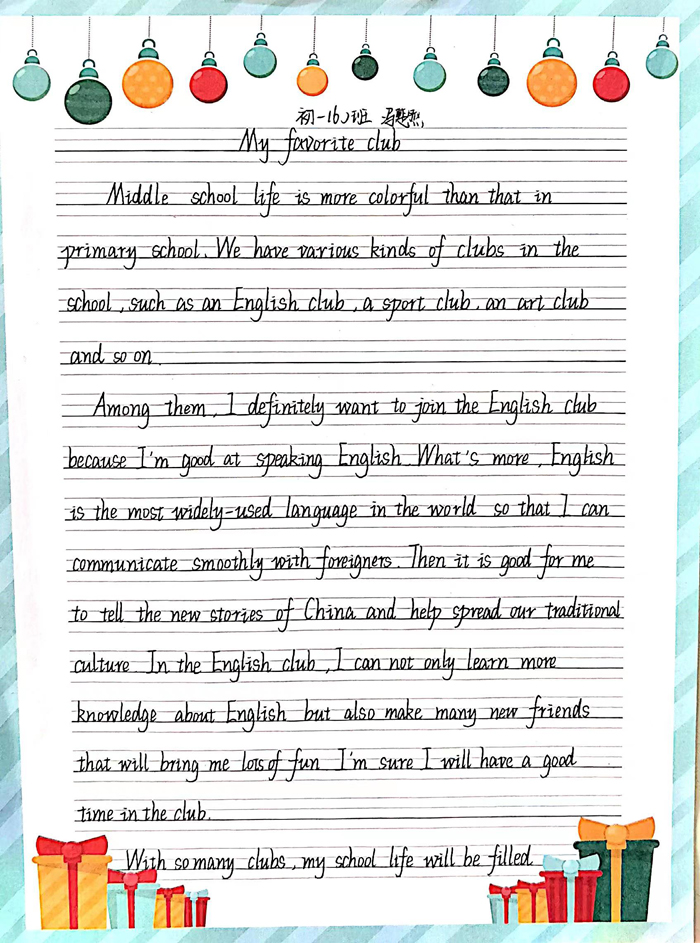 初一16)班
My favorite club
Middle school life is more colorful than that in
primary school. We have various kinds of clubs in the
school, such as an English club, a sport club, an art club
and so on.
Among them, I definitely want to join the English club
because I'm good at speaking English. What's more, English
is the most widely-used language in the world so that I can
communicate smoothly with foreigners. Then it is good for me
to tell the new stories of China and help spread our traditional
culture. In the English club, I can not only learn more
knowledge about English but also make many new friends
that will bring me lots of fun. I'm sure I will have a good
time in the club.
With so many clubs, my school life will be filled